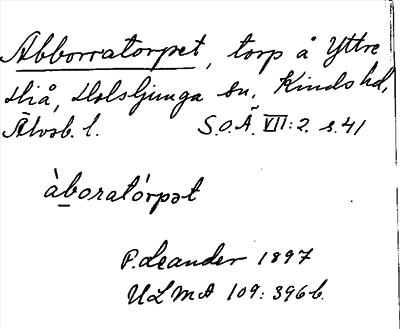 Abborratorpet, torp å Yttre
Hiå, Holsljunga sn, Kinds hd,
Älvsb. l. S.O.Ä. VII:2. s.41
àb̲oratórpət
P. Leander 1897
ULMA 109:396b.